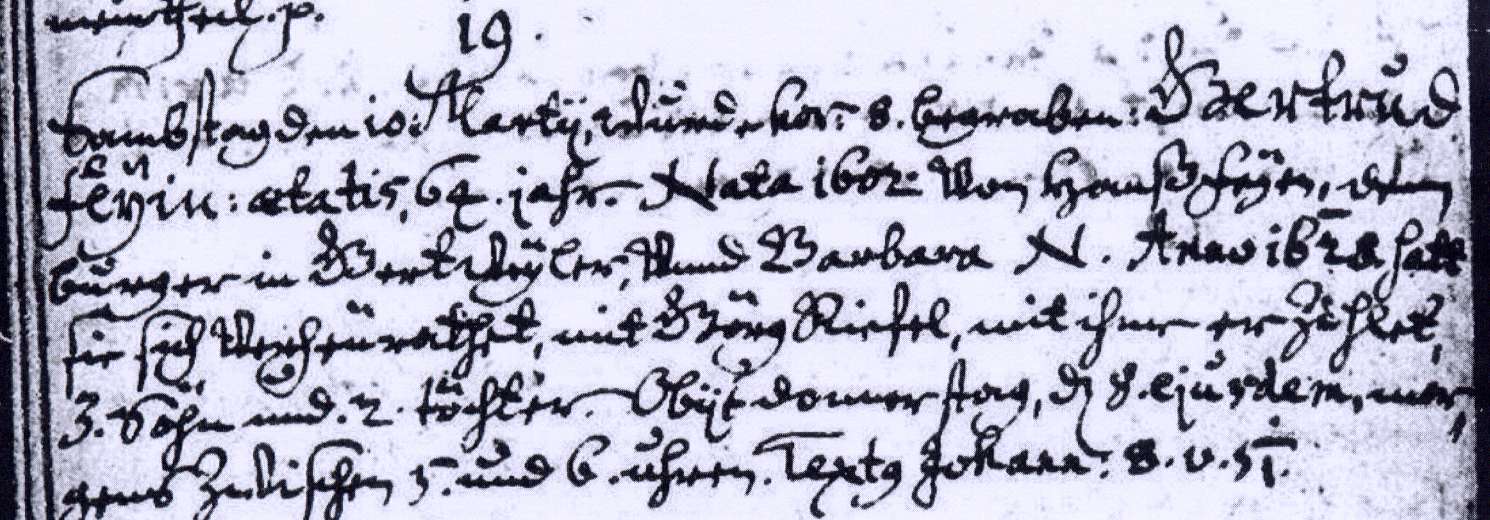 19.
Sambstag den 10: Martij, wurde hor: 8. begraben: Gertrud
Feÿin: ætatis, 64. jahr. Nata 1602: Von Hannß Feÿen, dem
burger in Bertweÿler, Vnnd Barbara N. Anno 1628 hatt
sie sich Verheüratthet, mit Görg Kiefel, mit ihme er Zühlet,
3. Söhn und. 2. töchter. Obijt donnerstag, dz 8. ejusdem, mor,,
gens Zwischen 5. und 6. uhren. Textg Johann: 8. v. 51.